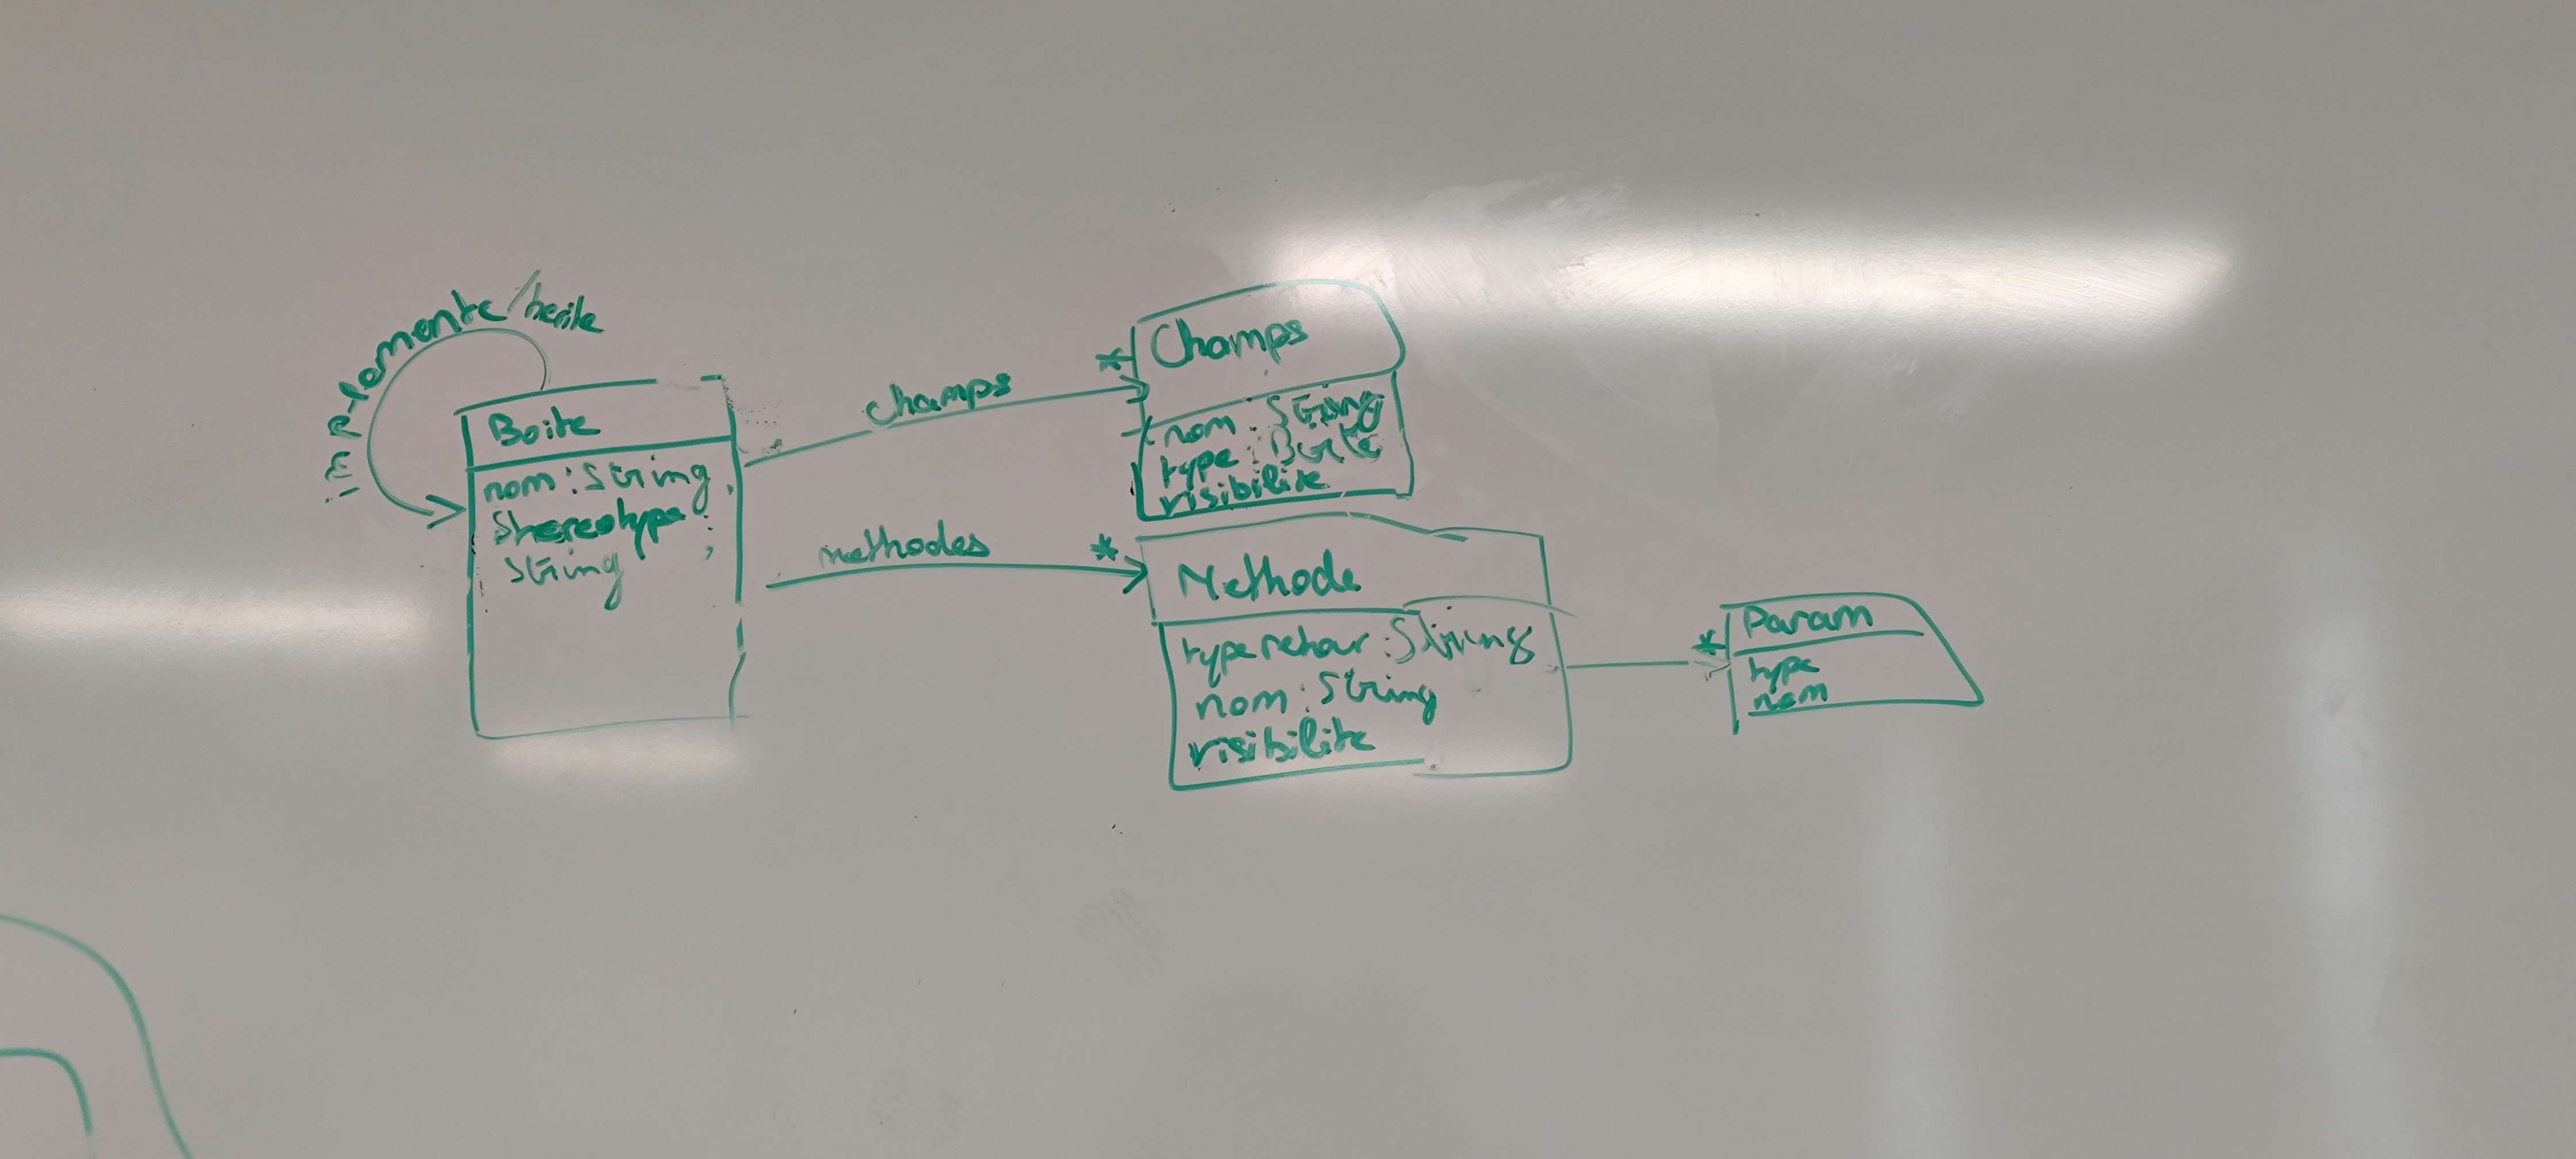 implemente/herite
Boite
nom : String
Stereotype :
String
champs
*
Champs
nom : String
type : Boite
visibilite
methodes
*
Methode
type retour : String
nom : String
visibilite
*
Param
type
nom